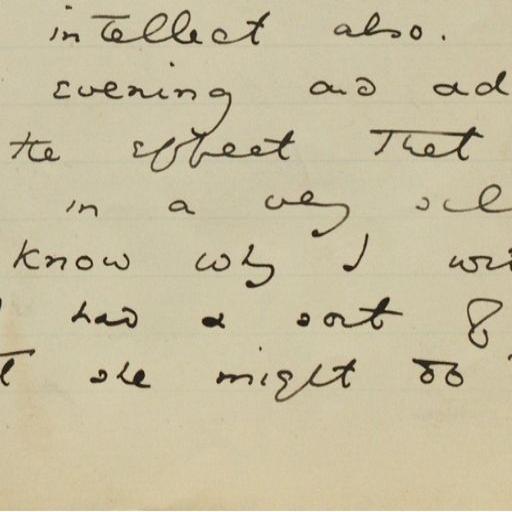 intellect also.
evening and ad
the effect that
in a very
know why I wri
had a sort of
she might